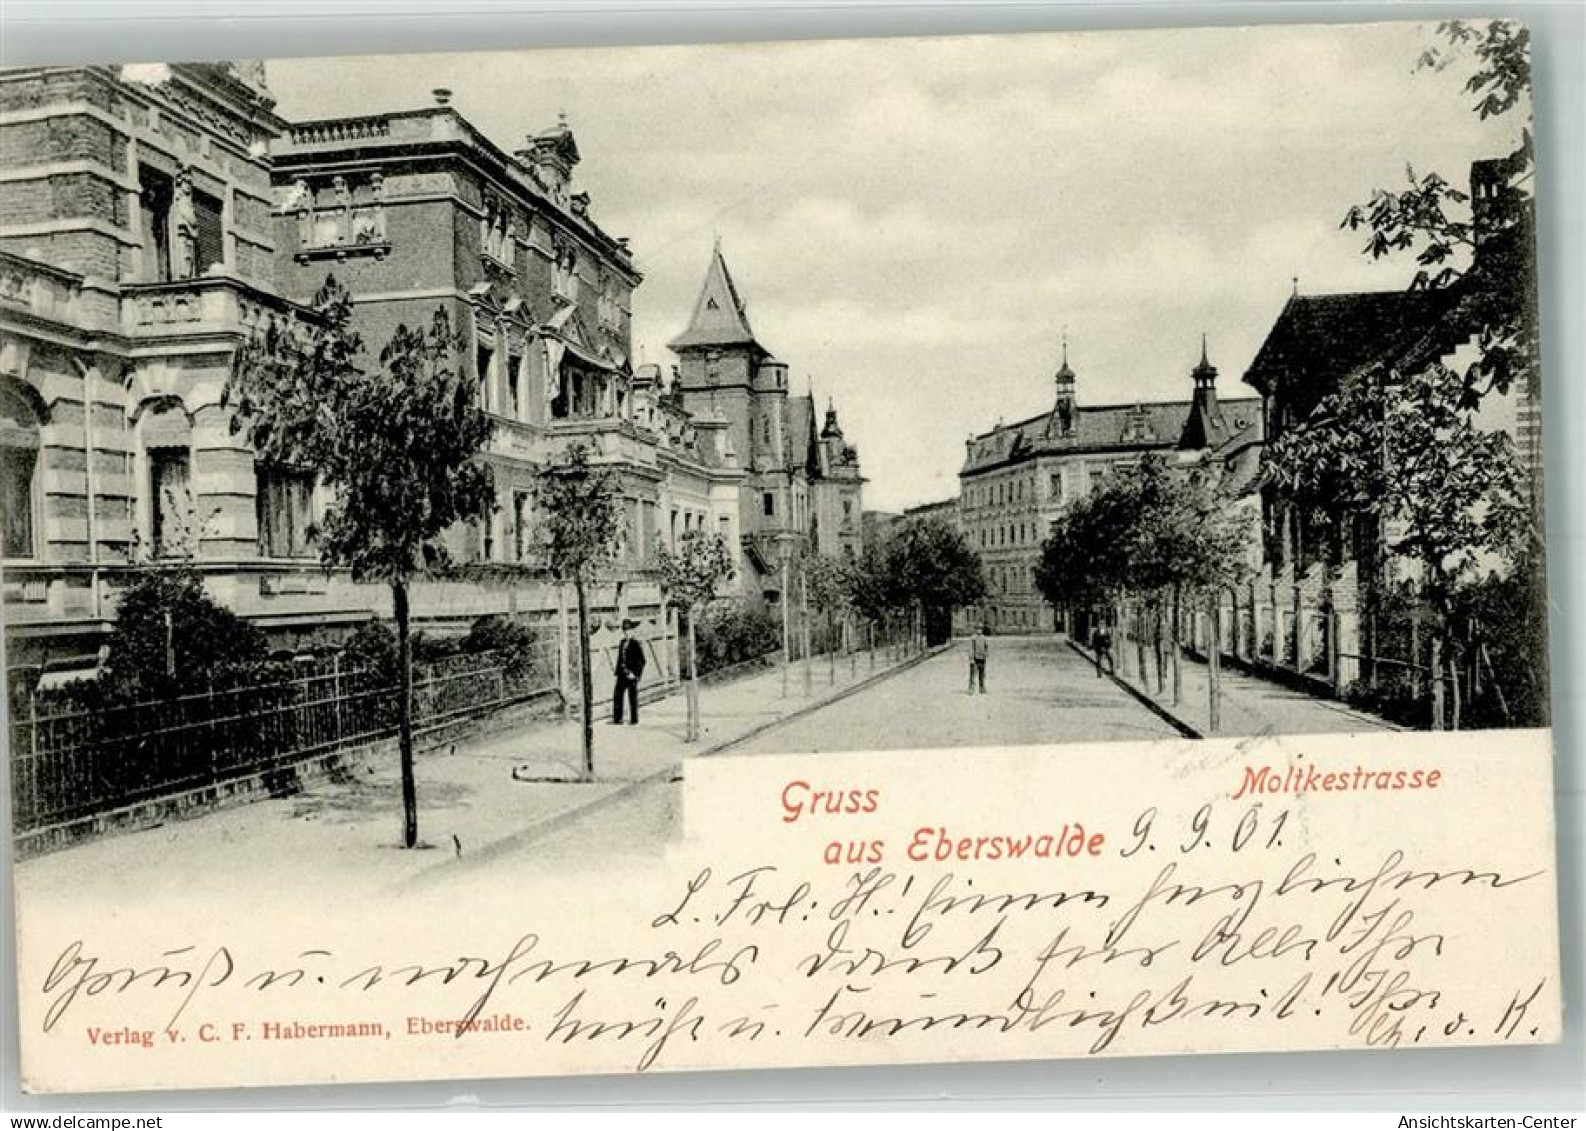 Moltkestrasse
Gruss
aus Eberswalde 9. 9. 01.
L. Frl: H.! Einen herzlichen
Gruß u. nochmals Dank für Alle Ihre
Mühe u. Freundlichkeit! Ihr
v. K.
Verlag v. C. F. Habermann, Eberswalde.
Ansichtskarten-Center